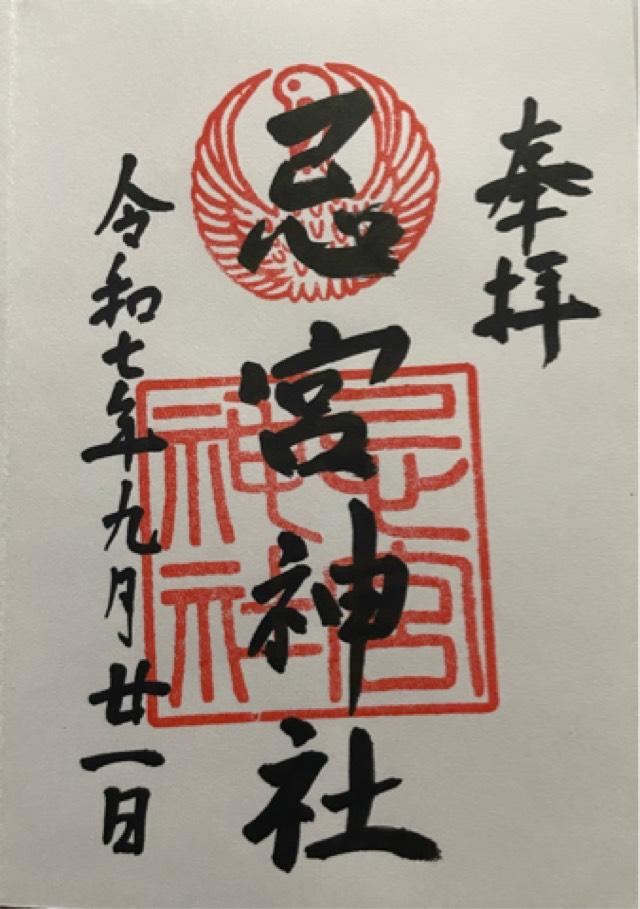 奉拝
忌宮神社
忌宮神社
令和七年九月廿一日